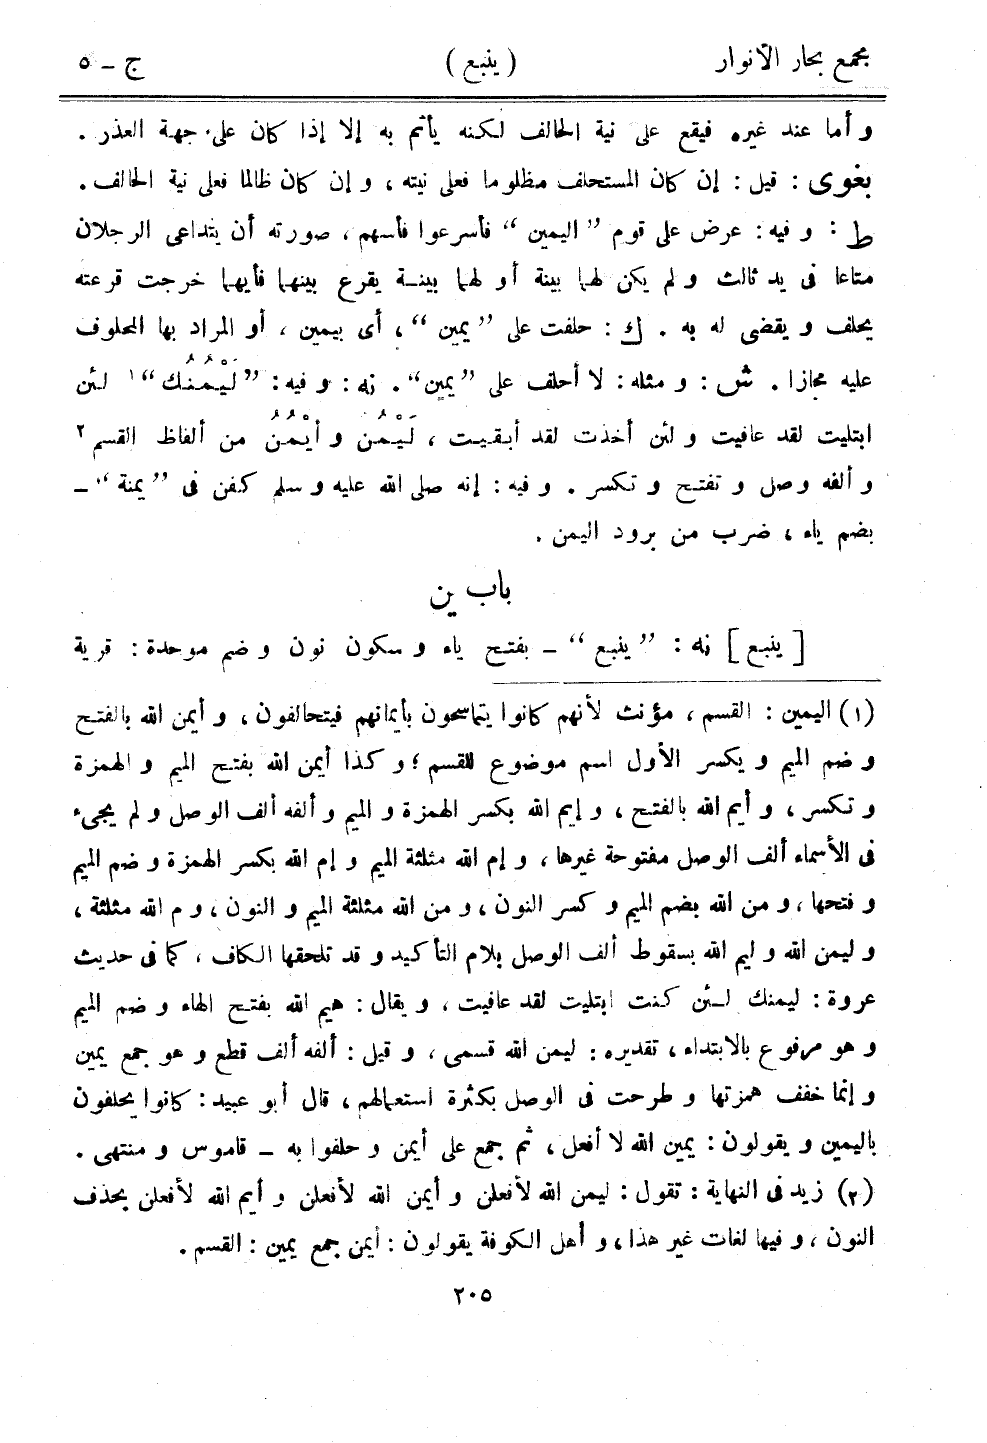 مجمع بحار الآنوار (ينبع) ج ـ ٥
و أما عند غيره فيقع على نية الحالف لكنه يأثم به إلا إذا كان على جهة العذر .
بغوى : قيل : إن كان المستحلف مظلوما فعلى نيته ، و إن كان ظالما فعلى نية الحالف .
ط : و فيه : عرض على قوم ”اليمين“ فأسرعوا فأسهم ، صورته أن يتداعى الرجلان
متاعا فى يد ثالث و لم يكن لهما بينة أو لهما بينـة يقرع بينهما فأيهما خرجت قرعته
يحلف و يقضى له به . ك : حلفت على ”يمين“ ، أى بيمين ، أو المراد بها المحلوف
عليه مجازا . ش : و مثله : لا أحلف على ”يمين“ . نه : و فيه : ”لَيْمُنُك“ ١ لئن
ابتليت لقد عافيت و لئن أخذت لقد أبقيت ، لَيْمُن و أيْمُنُ من ألفاظ القسم ٢
و ألفه وصل و تفتح و تكسر . و فيه : إنه صلى الله عليه و سلم كفن فى ”يمنة“ ـ
بضم ياء ، ضرب من برود اليمن .
باب ين
[ ينبع ] نه : ”ينبع“ ـ بفتح ياء و سكون نون و ضم موحدة : قرية
(١) اليمين : القسم ، مؤنث لأنهم كانوا يتماسحون بأيمانهم فيتحالفون ، و أيمن الله بالفتح
و ضم الميم و يكسر الأول اسم موضوع للقسم ؛ و كذا أيمن الله بفتح الميم و الهمزة
و تكسر ، و أيم الله بالفتح ، و إيم الله بكسر الهمزة و الميم و ألفه ألف الوصل و لم يجىء
فى الأسماء ألف الوصل مفتوحة غيرها ، و إم الله مثلثة الميم و إم الله بكسر الهمزة و ضم الميم
و فتحها ، و من الله بضم الميم و كسر النون ، و من الله مثلثة الميم و النون ، و م الله مثلثة ،
و ليمن الله و ليم الله بسقوط ألف الوصل بلام التأكيد و قد تلحقها الكاف ، كما فى حديث
عروة : ليمنك لـئن كنت ابتليت لقد عافيت ، و يقال : هيم الله بفتح الهاء و ضم الميم
و هو مرفوع بالابتداء ، تقديره : ليمن الله قسمى ، و قيل : ألفه ألف قطع و هو جمع يمين
و إنما خفف همزتها و طرحت فى الوصل بكثرة استعمالهم ، قال أبو عبيد : كانوا يحلفون
باليمين و يقولون : يمين الله لا أفعل ، ثم جمع على أيمن و حلفوا به ـ قاموس و منتهى .
(٢) زيد فى النهاية : تقول : ليمن الله لأفعلن و أيمن الله لأفعلن و أيم الله لأفعلن بحذف
النون ، و فيها لغات غير هذا ، و أهل الكوفة يقولون : أيمن جمع يمين : القسم .
٢٠٥